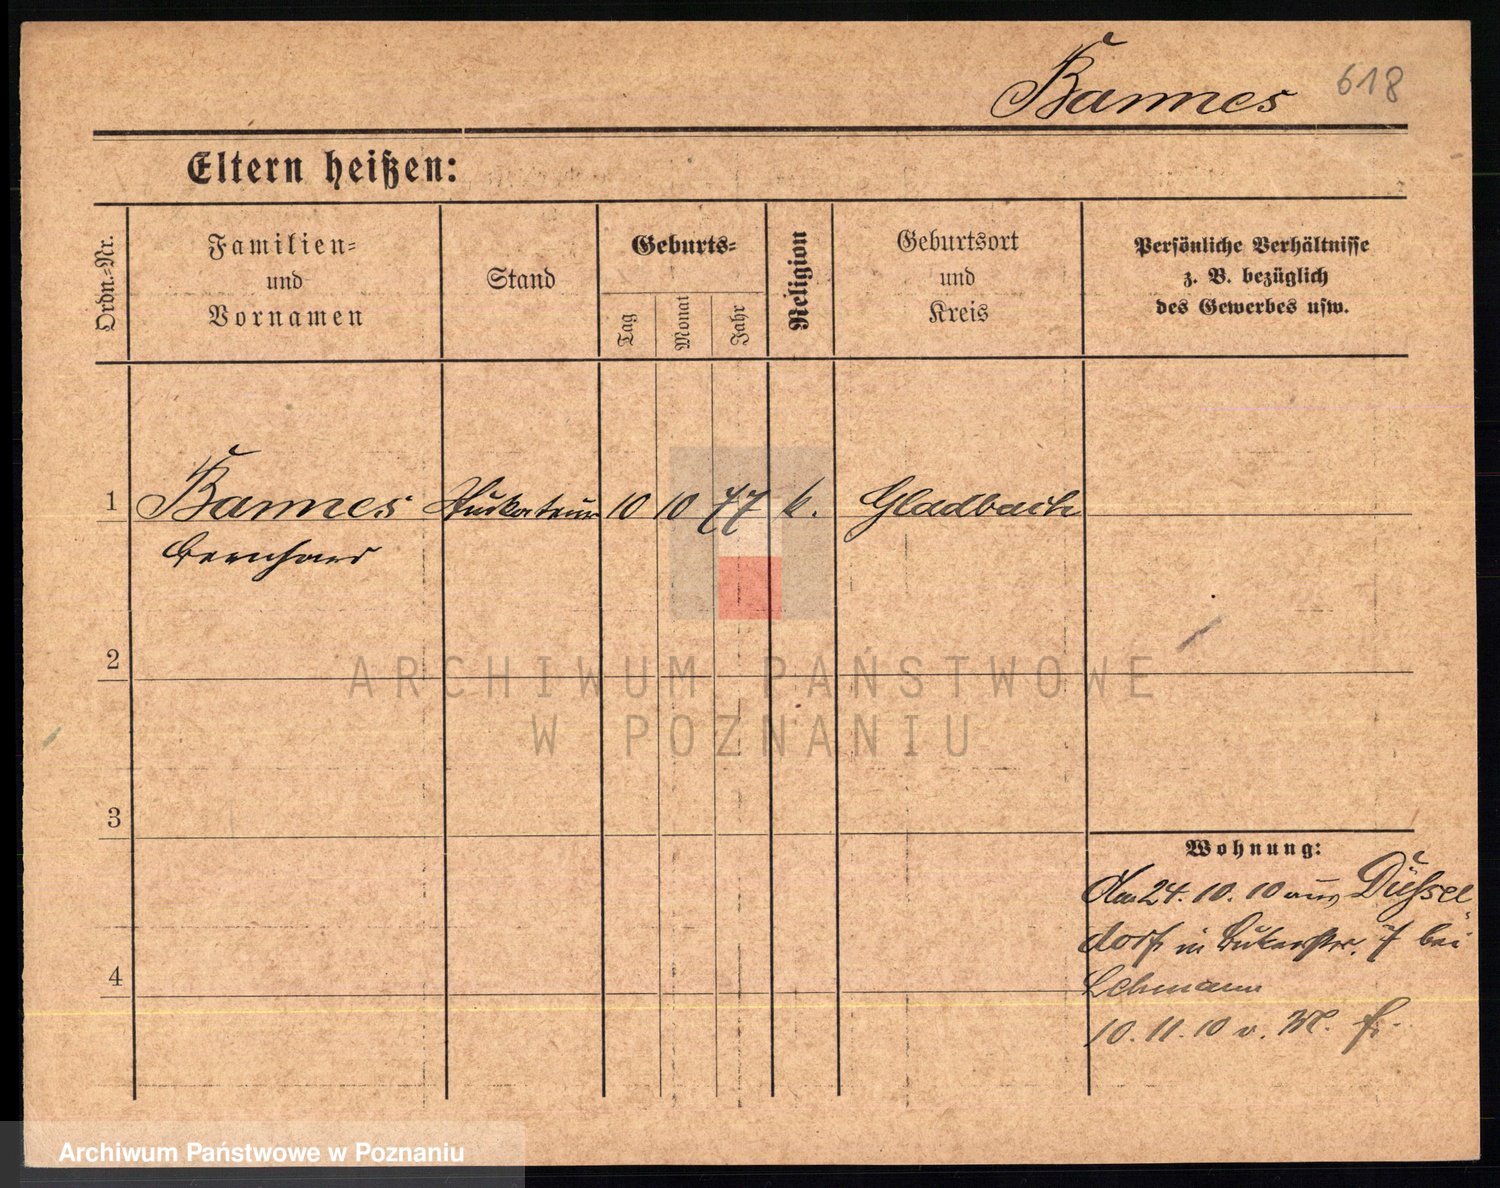 Bannes 618
Eltern heißen:
Ordn.=Nr.
Familien=
und
Vornamen
Stand
Geburts=
Tag
Monat
Jahr
Religion
Geburtsort
und
Kreis
Persönliche Verhältnisse
z. B. bezüglich
des Gewerbes usw.
1 Bannes Stuckateur 10 10 77 k. Gladbach
Bernhard
2
ARCHIWUM PAŃSTWOWE
W POZNANIU
3
Wohnung:
24. 10. 10 aus Düssel
dorf in 7 bei
4
Lehmann
10. 11. 10 v.
Archiwum Państwowe w Poznaniu